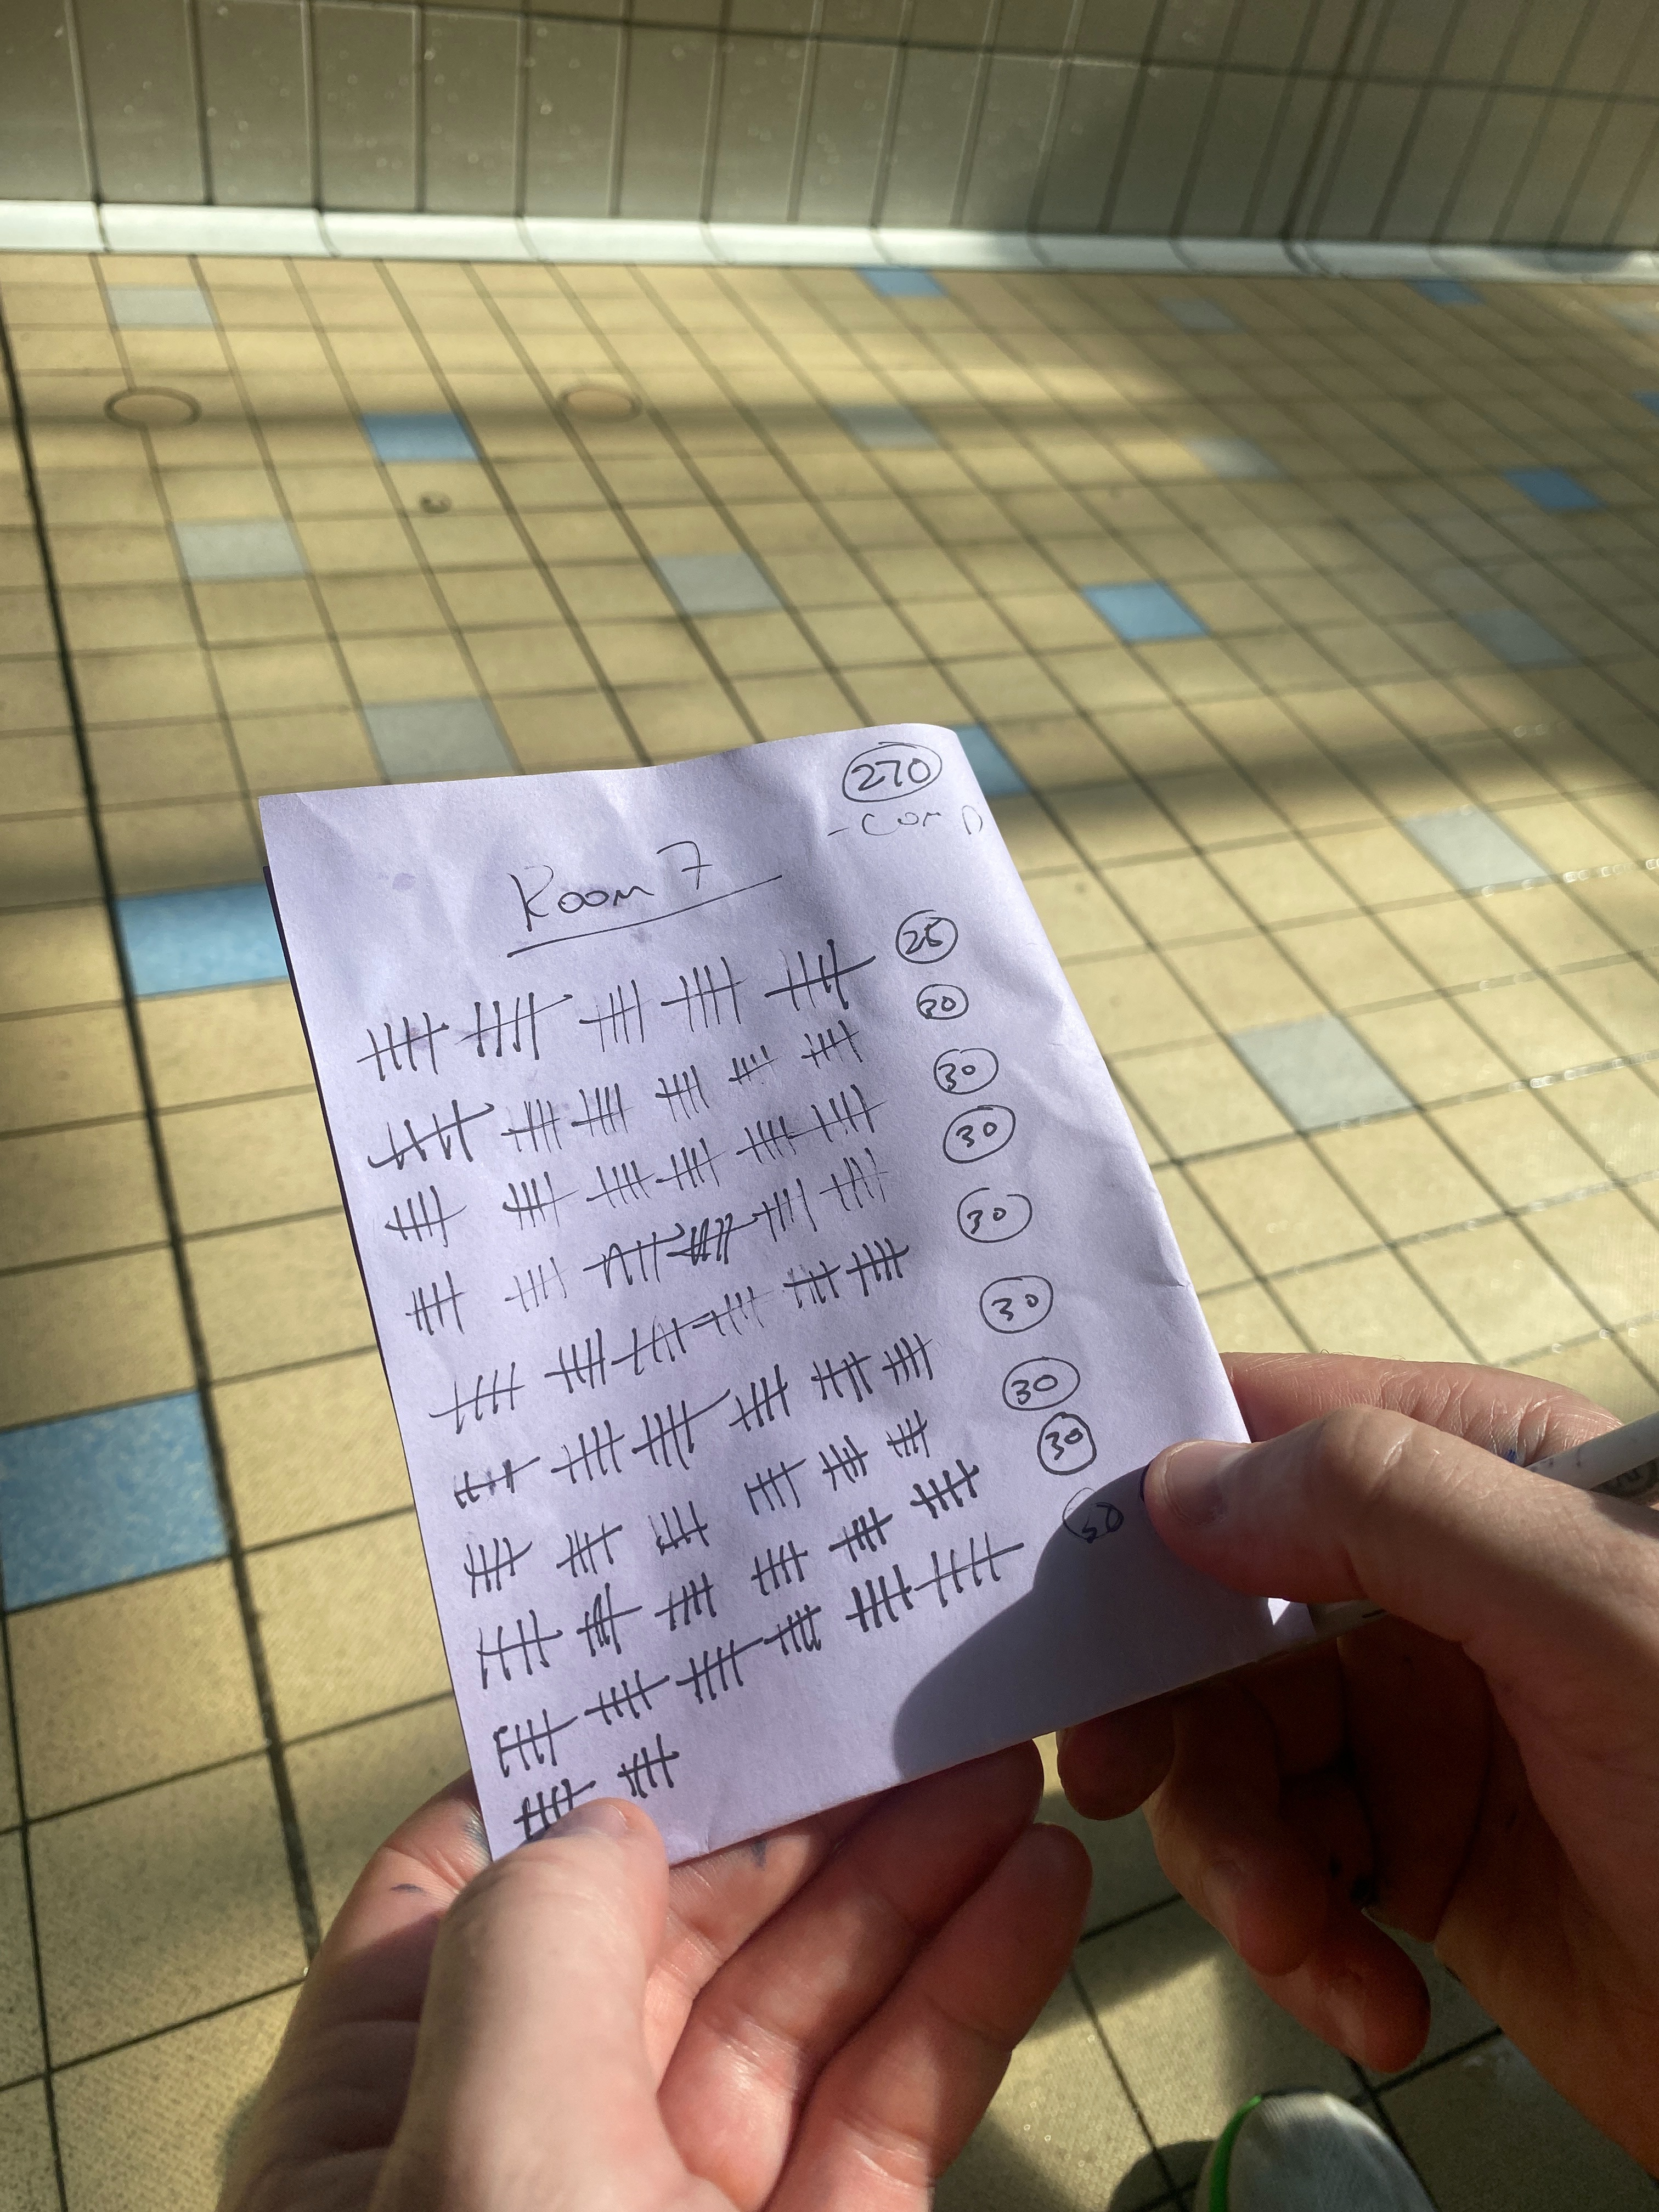 270
- COMP
Room 7
25
30
30
30
30
30
30
30